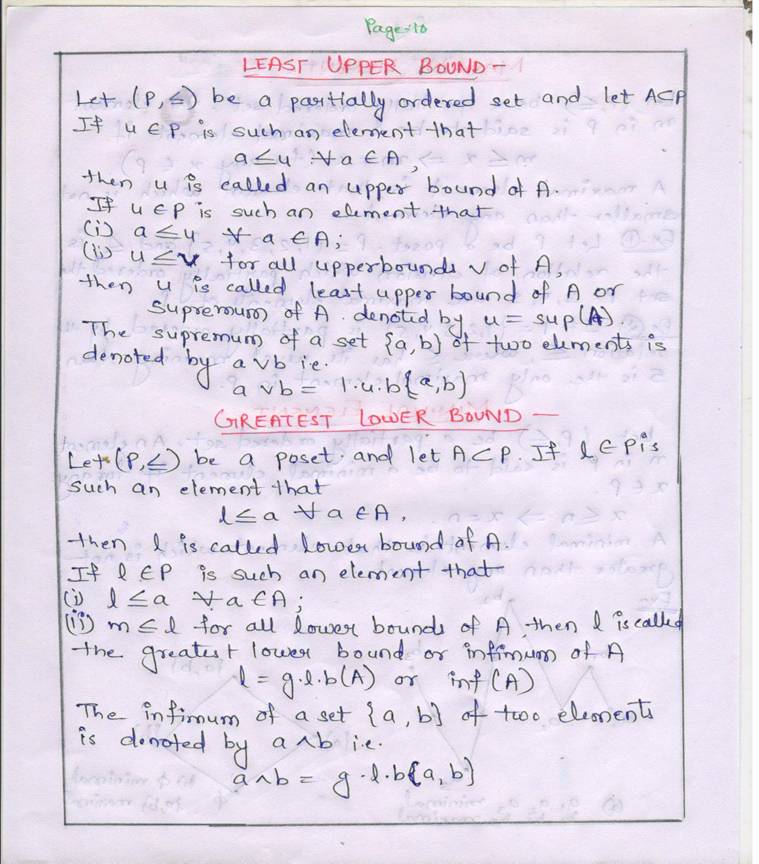 Page-10
LEAST UPPER BOUND -
Let (P, ≤) be a partially ordered set and let A⊂P
If u ∈ P is such an element that
a ≤ u ∀ a ∈ A,
then u is called an upper bound of A.
If u ∈ P is such an element that
(i) a ≤ u ∀ a ∈ A;
(ii) u ≤ v for all upperbounds v of A,
then u is called least upper bound of A or
Supremum of A. denoted by u = sup(A).
The supremum of a set {a, b} of two elements is
denoted by a ∨ b i.e.
a ∨ b = l.u.b{a, b}
GREATEST LOWER BOUND -
Let (P, ≤) be a poset and let A ⊂ P. If l ∈ P is
such an element that
l ≤ a ∀ a ∈ A,
then l is called lower bound of A.
If l ∈ P is such an element that
(i) l ≤ a ∀ a ∈ A;
(ii) m ≤ l for all lower bounds of A, then l is called
the greatest lower bound or infimum of A
l = g.l.b(A) or inf(A)
The infimum of a set {a, b} of two elements
is denoted by a ∧ b i.e.
a ∧ b = g.l.b{a, b}